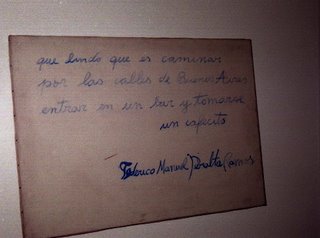 que lindo que es caminar
por las calles de Buenos Aires
entrar en un bar y tomarse
un cafecito
Federico Manuel Peralta Ramos